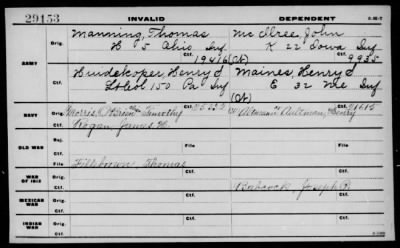 29153 INVALID DEPENDENT
Orig. Manning, Thomas Mc Clree, John
H 5 Ohio Inf K 22 Iowa Inf
ARMY 19416 (Ct) 9935
Ctf. Huidekoper, Henry S Maines, Henry d
Lt Col 150 Pa Inf E 32 Me Inf
(Ct)
NAVY Orig. Morris, Timothy Altman Aultman, Henry
Ctf. Hogan, James H.
OLD WAR Orig.
Ctf.
File
WAR OF 1812 Orig. Fillebrown, Thomas
Ctf. Babcock, Joseph
MEXICAN WAR Orig.
Ctf.
INDIAN WAR Orig.
Ctf.